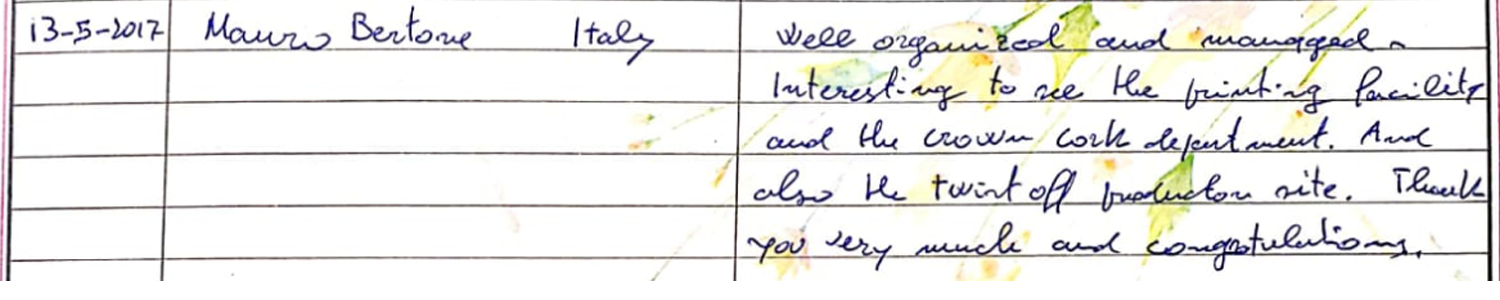 13-5-2017 Mauro Bertone Italy Well organized and managed.
Interesting to see the printing facility
and the crown cork department. And
also the twist off production site. Thank
you very much and congratulations.